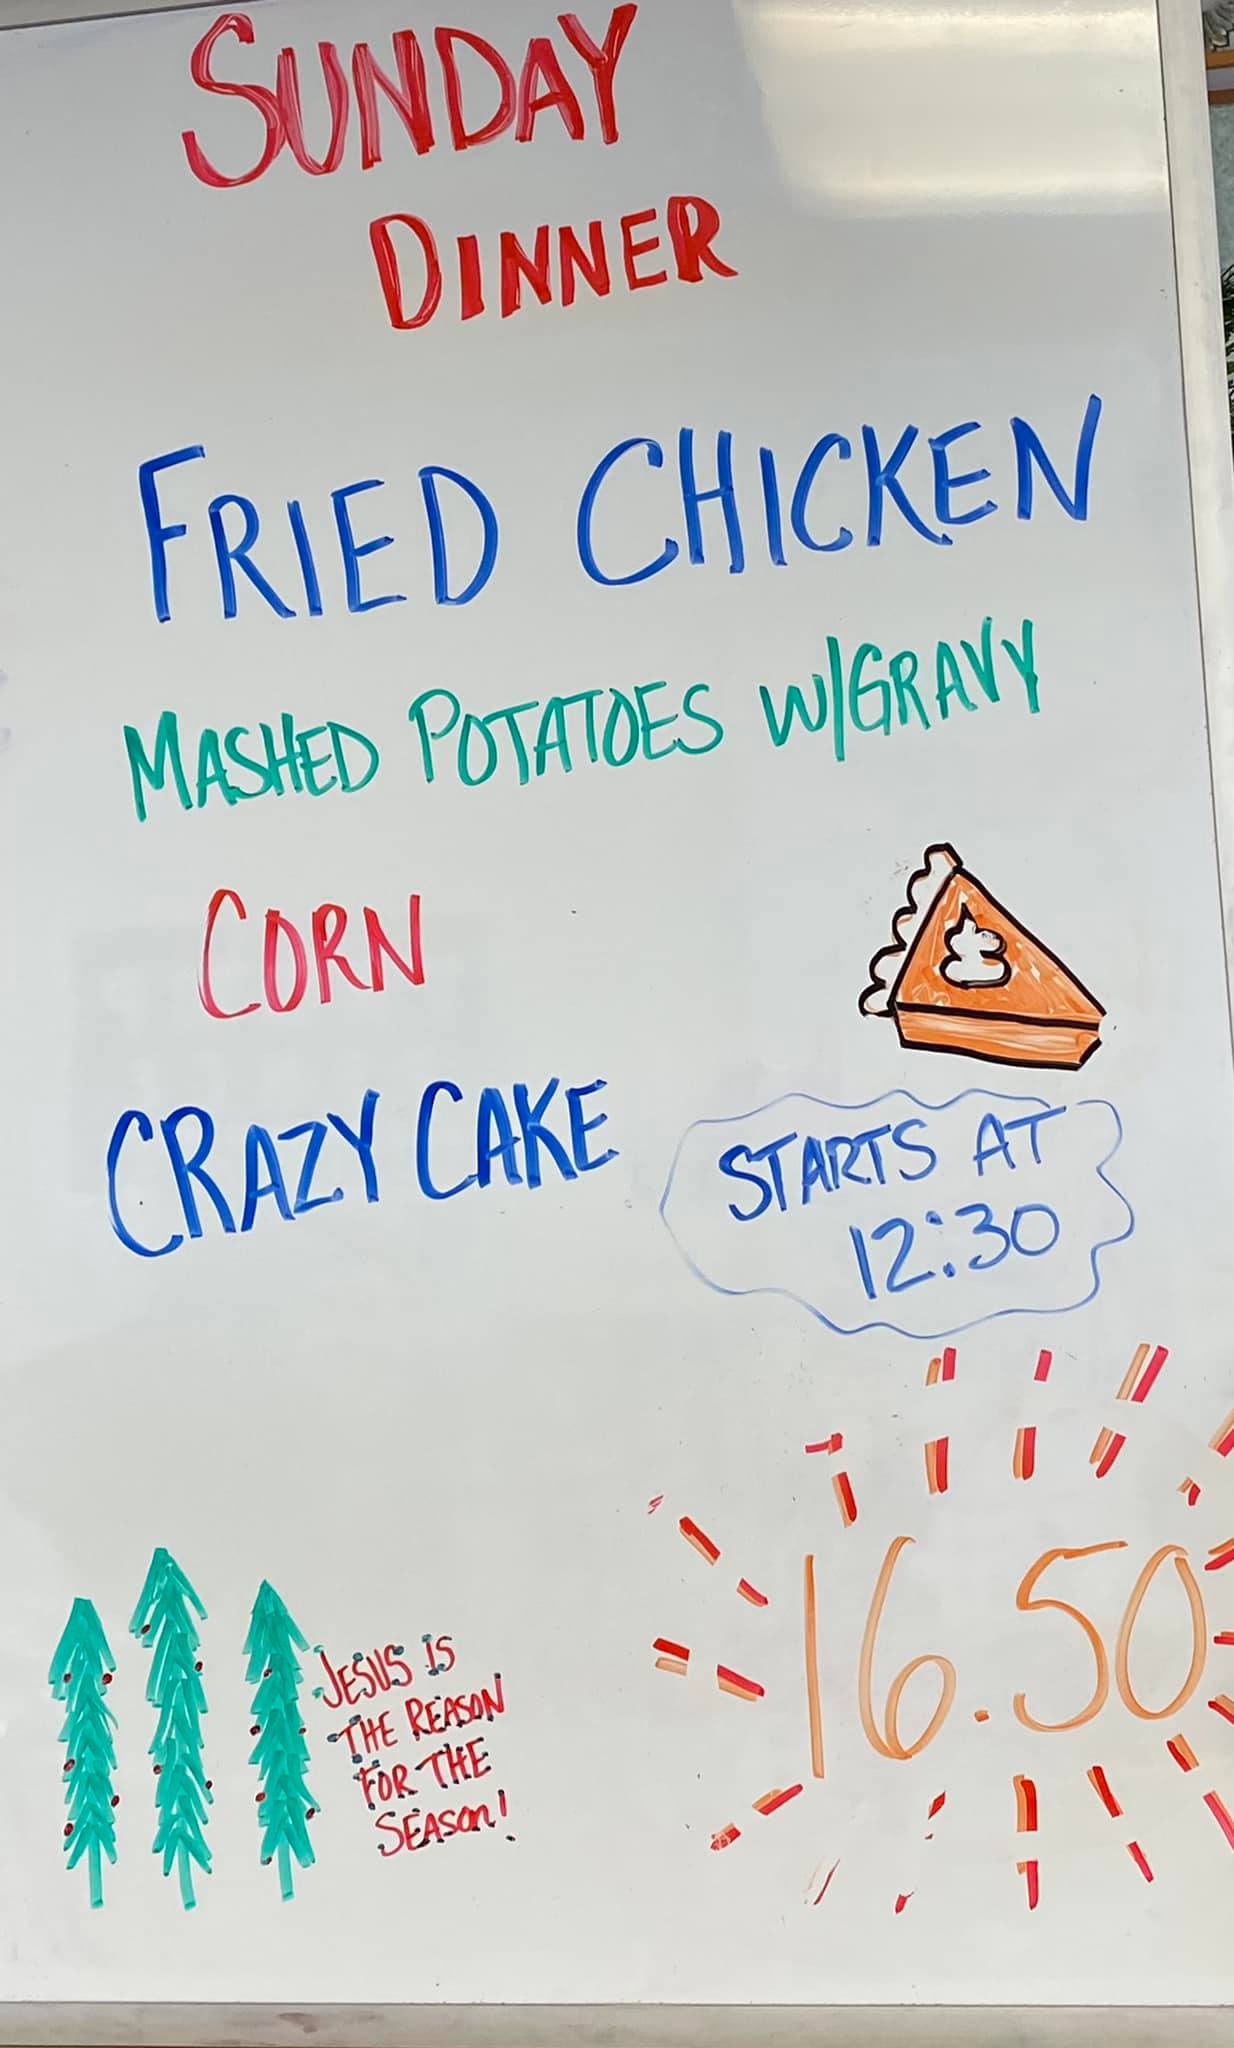 SUNDAY
DINNER
FRIED CHICKEN
MASHED POTATOES W/GRAVY
CORN
CRAZY CAKE
STARTS AT
12:30
16.50
JESUS IS
THE REASON
FOR THE
SEASON!